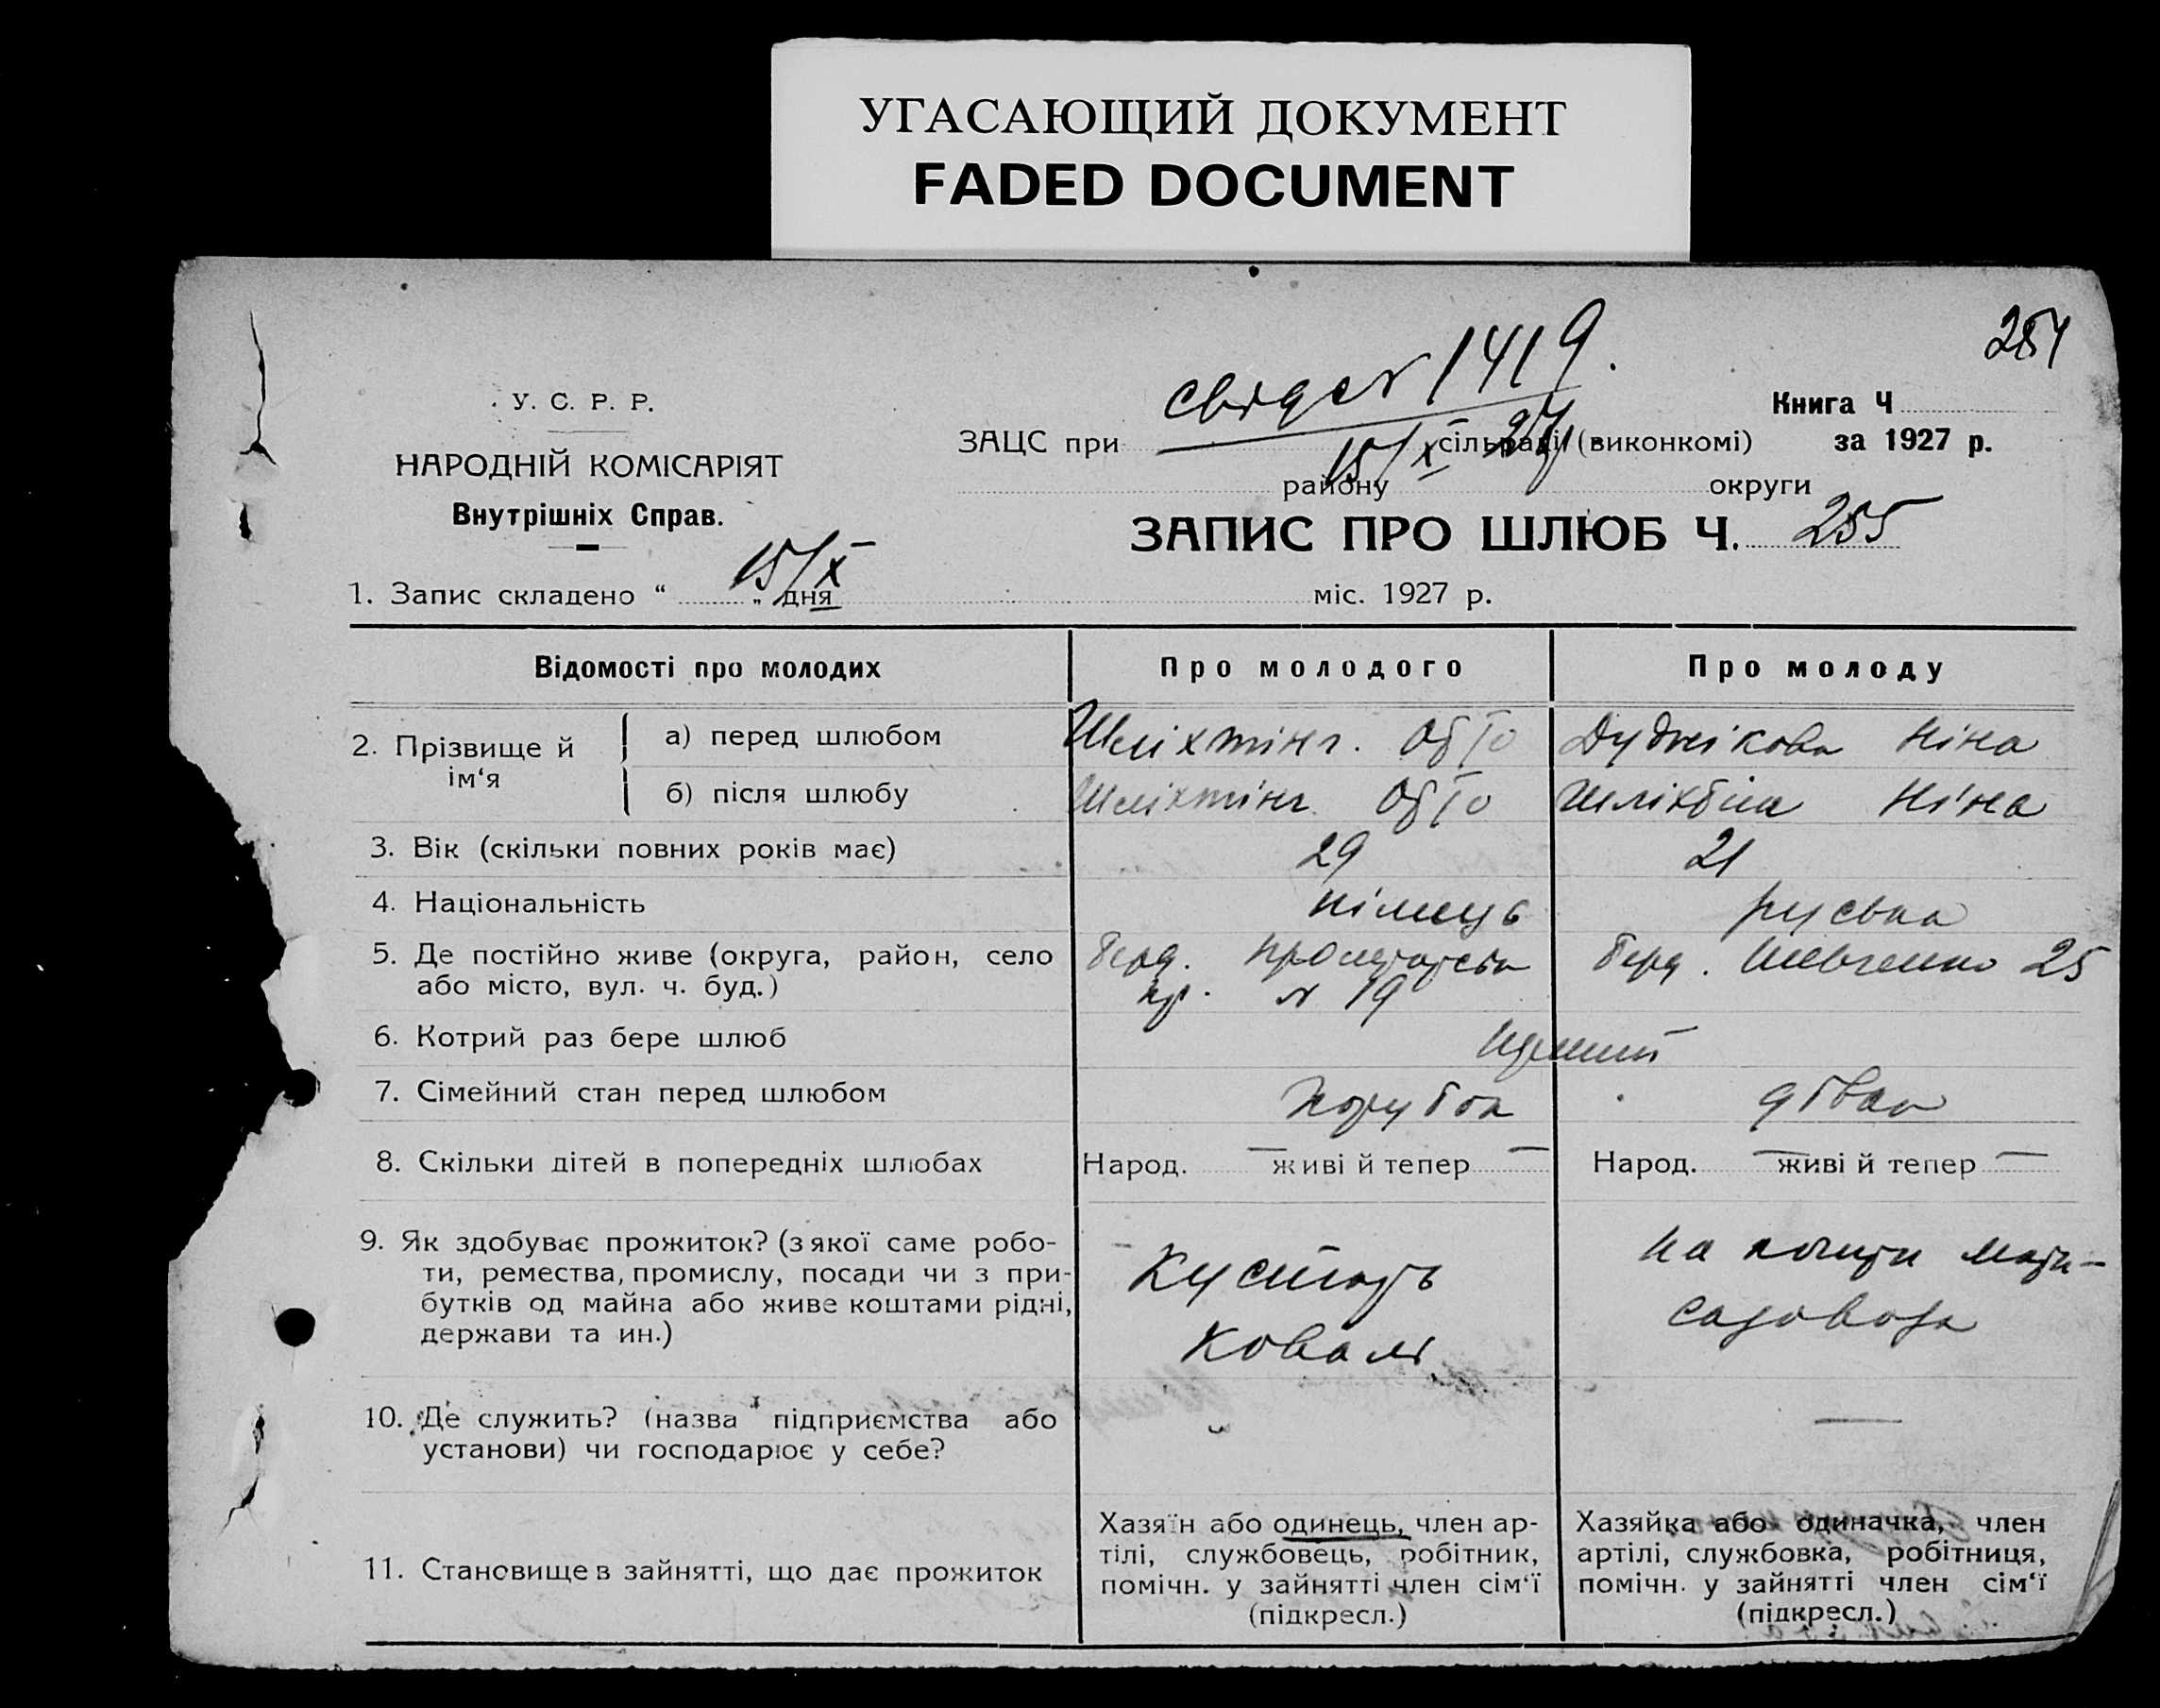 УГАСАЮЩИЙ ДОКУМЕНТ
FADED DOCUMENT
254
У. С. Р. Р.
НАРОДНІЙ КОМІСАРІЯТ
Внутрішніх Справ.
1419.
Книга Ч
ЗАЦС при сільраді (виконкомі) за 1927 р.
15/X 27
району округи
ЗАПИС ПРО ШЛЮБ Ч. 255
1. Запис складено “ 15/X „ дня міс. 1927 р.
Відомості про молодих Про молодого Про молоду
2. Прізвище й ім‘я
а) перед шлюбом Шліхтінг. Отто Дуднікова Ніна
б) після шлюбу Шліхтінг Отто Ніна
3. Вік (скільки повних років має) 29 21
4. Національність німець руська
5. Де постійно живе (округа, район, село Берд. Пролетарська Берд. Шевченко 25
або місто, вул. ч. буд.) № 19
6. Котрий раз бере шлюб
7. Сімейний стан перед шлюбом Парубок дівка
8. Скільки дітей в попередніх шлюбах Народ. — живі й тепер — Народ. — живі й тепер —
9. Як здобуває прожиток? (з якої саме робо-
ти, ремества, промислу, посади чи з при-
бутків од майна або живе коштами рідні,
держави та ин.)
Кустарь
Коваль
на кошти
10. Де служить? (назва підприємства або
установи) чи господарює у себе?
—
11. Становище в зайнятті, що дає прожиток
Хазяїн або одинець, член ар-
тілі, службовець, робітник,
помічн. у зайнятті член сім‘ї
(підкресл.)
Хазяйка або одиначка, член
артілі, службовка, робітниця,
помічн. у зайнятті член сім‘ї
(підкресл.)